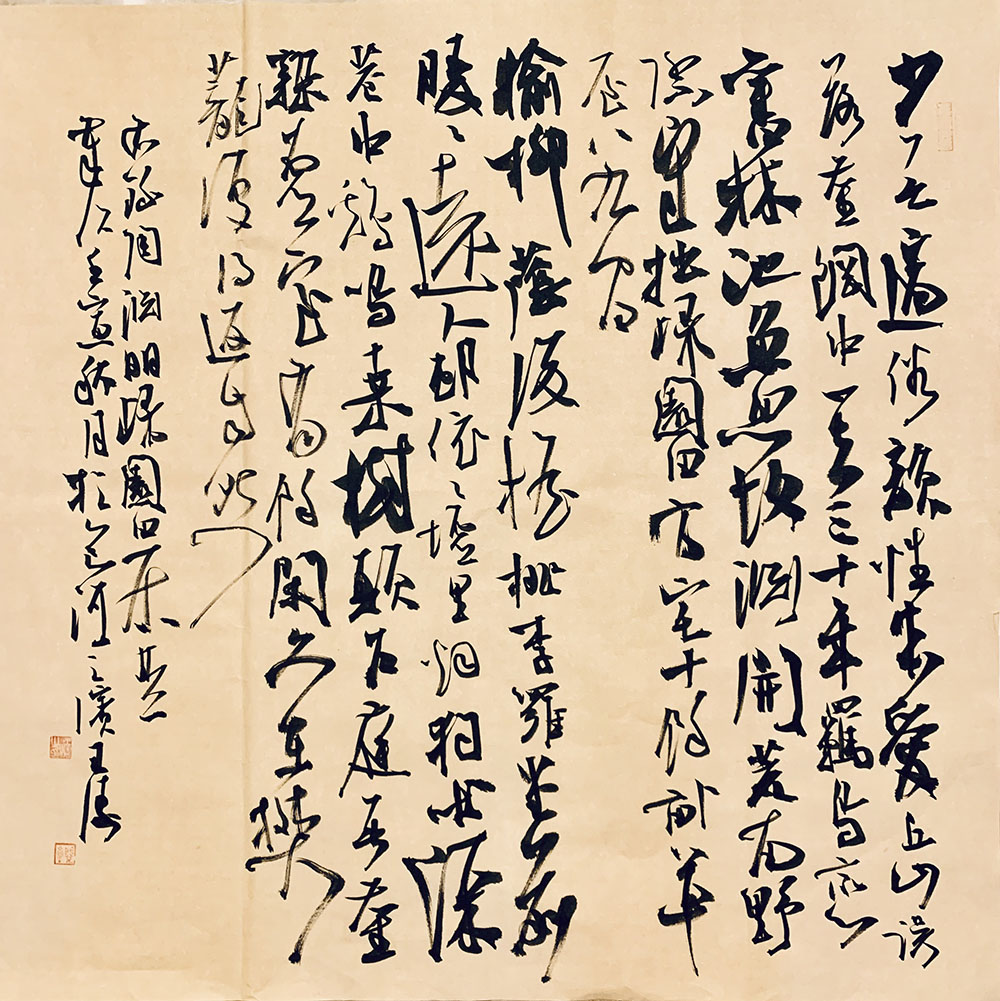 少无適俗韻性本愛丘山誤
落塵網中一去三十年羈鳥戀
舊林池魚思故淵開荒南野
際守拙歸園田方宅十餘畝草
屋八九間
榆柳蔭後檐桃李羅堂前
曖〻遠人邨依〻墟里烟狗吠深
巷中鷄鳴桑樹顛戶庭無塵
雜虛室有餘閑久在樊
籠復得返自然
右録陶淵明歸園田居其一
秋月於河之濱王濤